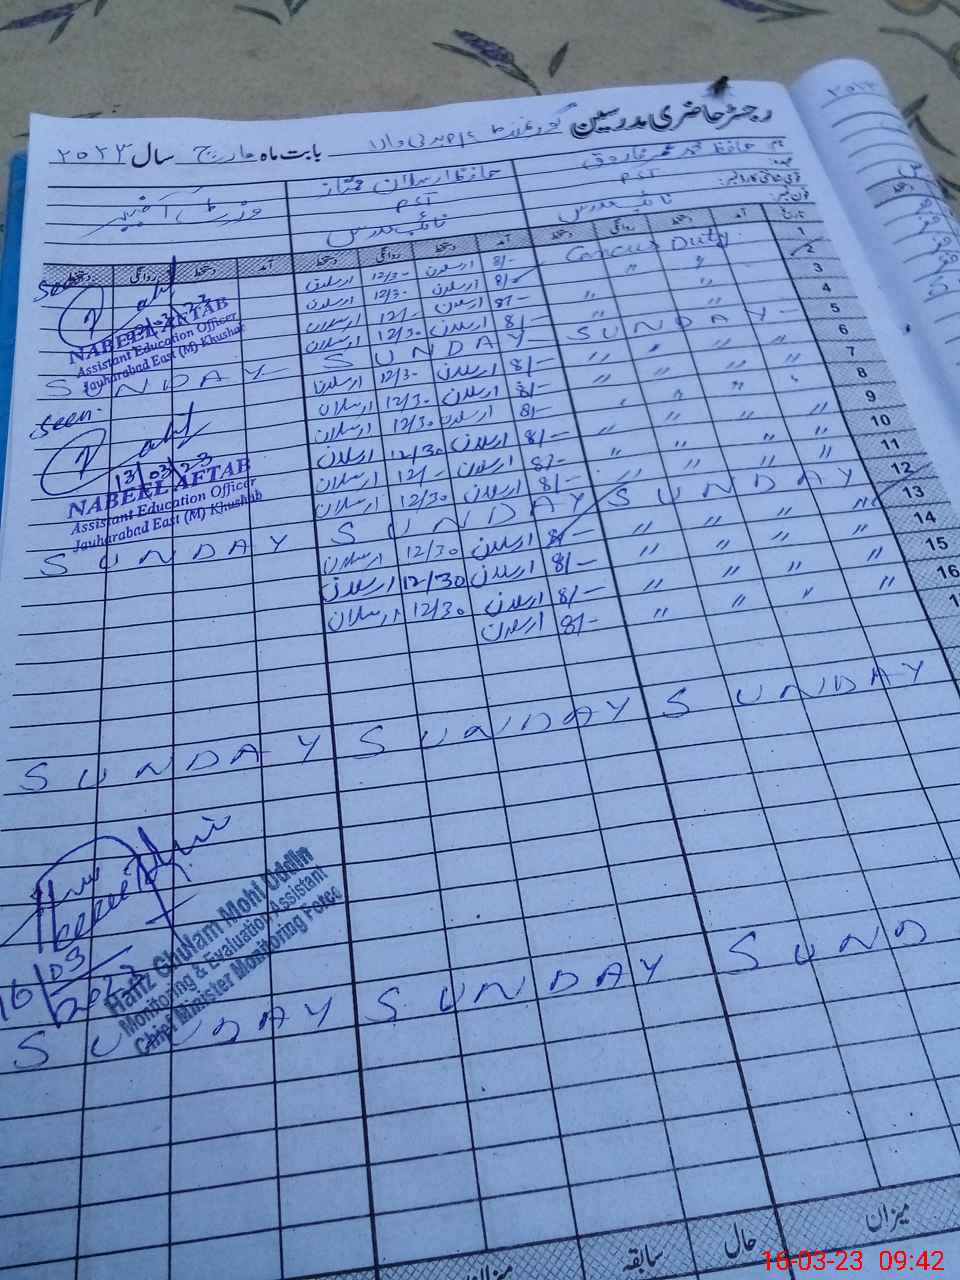 رجسٹر حاضری مدرسین
بابت ماہ مارچ سال ۲۰۲۳
حافظ محمد عمر فاروق حافظ ارسلان ممتاز وزٹ آفیسر
PST PST
نائب مدرس نائب مدرس
تاریخ آمد دستخط روانگی دستخط آمد دستخط روانگی دستخط آمد دستخط روانگی دستخط
1 Duty 8/- ارسلان 12/30 ارسلان Seen
2 " " 8/- ارسلان 12/30 ارسلان
3 " " 8/- ارسلان 12/- ارسلان
4 " " 8/- ارسلان 12/30 ارسلان
5 SUNDAY SUNDAY SUNDAY
NABEEL AFTAB
Assistant Education Officer
Jauharabad East (M) Khushab
6 " " " 8/- ارسلان 12/30 ارسلان Seen
7 " " " " 8/- ارسلان 12/30 ارسلان
8 " " " " 8/- ارسلان 12/30 ارسلان
9 " " " " 8/- ارسلان 12/30 ارسلان
10 " " " " 8/- ارسلان 12/- ارسلان
11 " " " " 8/- ارسلان 12/30 ارسلان
12 SUNDAY SUNDAY SUNDAY
13/03/23
NABEEL AFTAB
Assistant Education Officer
Jauharabad East (M) Khushab
13 " " " " 8/- ارسلان 12/30 ارسلان
14 " " " " 8/- ارسلان 12/30 ارسلان
15 " " " " 8/- ارسلان 12/30 ارسلان
16 " " " " 8/- ارسلان
SUNDAY SUNDAY SUNDAY
16/03/2023
Hafiz Ghulam Mohi Uddin
Monitoring & Evaluation Assistant
Chief Minister Monitoring Force
SUNDAY SUNDAY SUND
میزان حال سابقہ
16-03-23 09:42